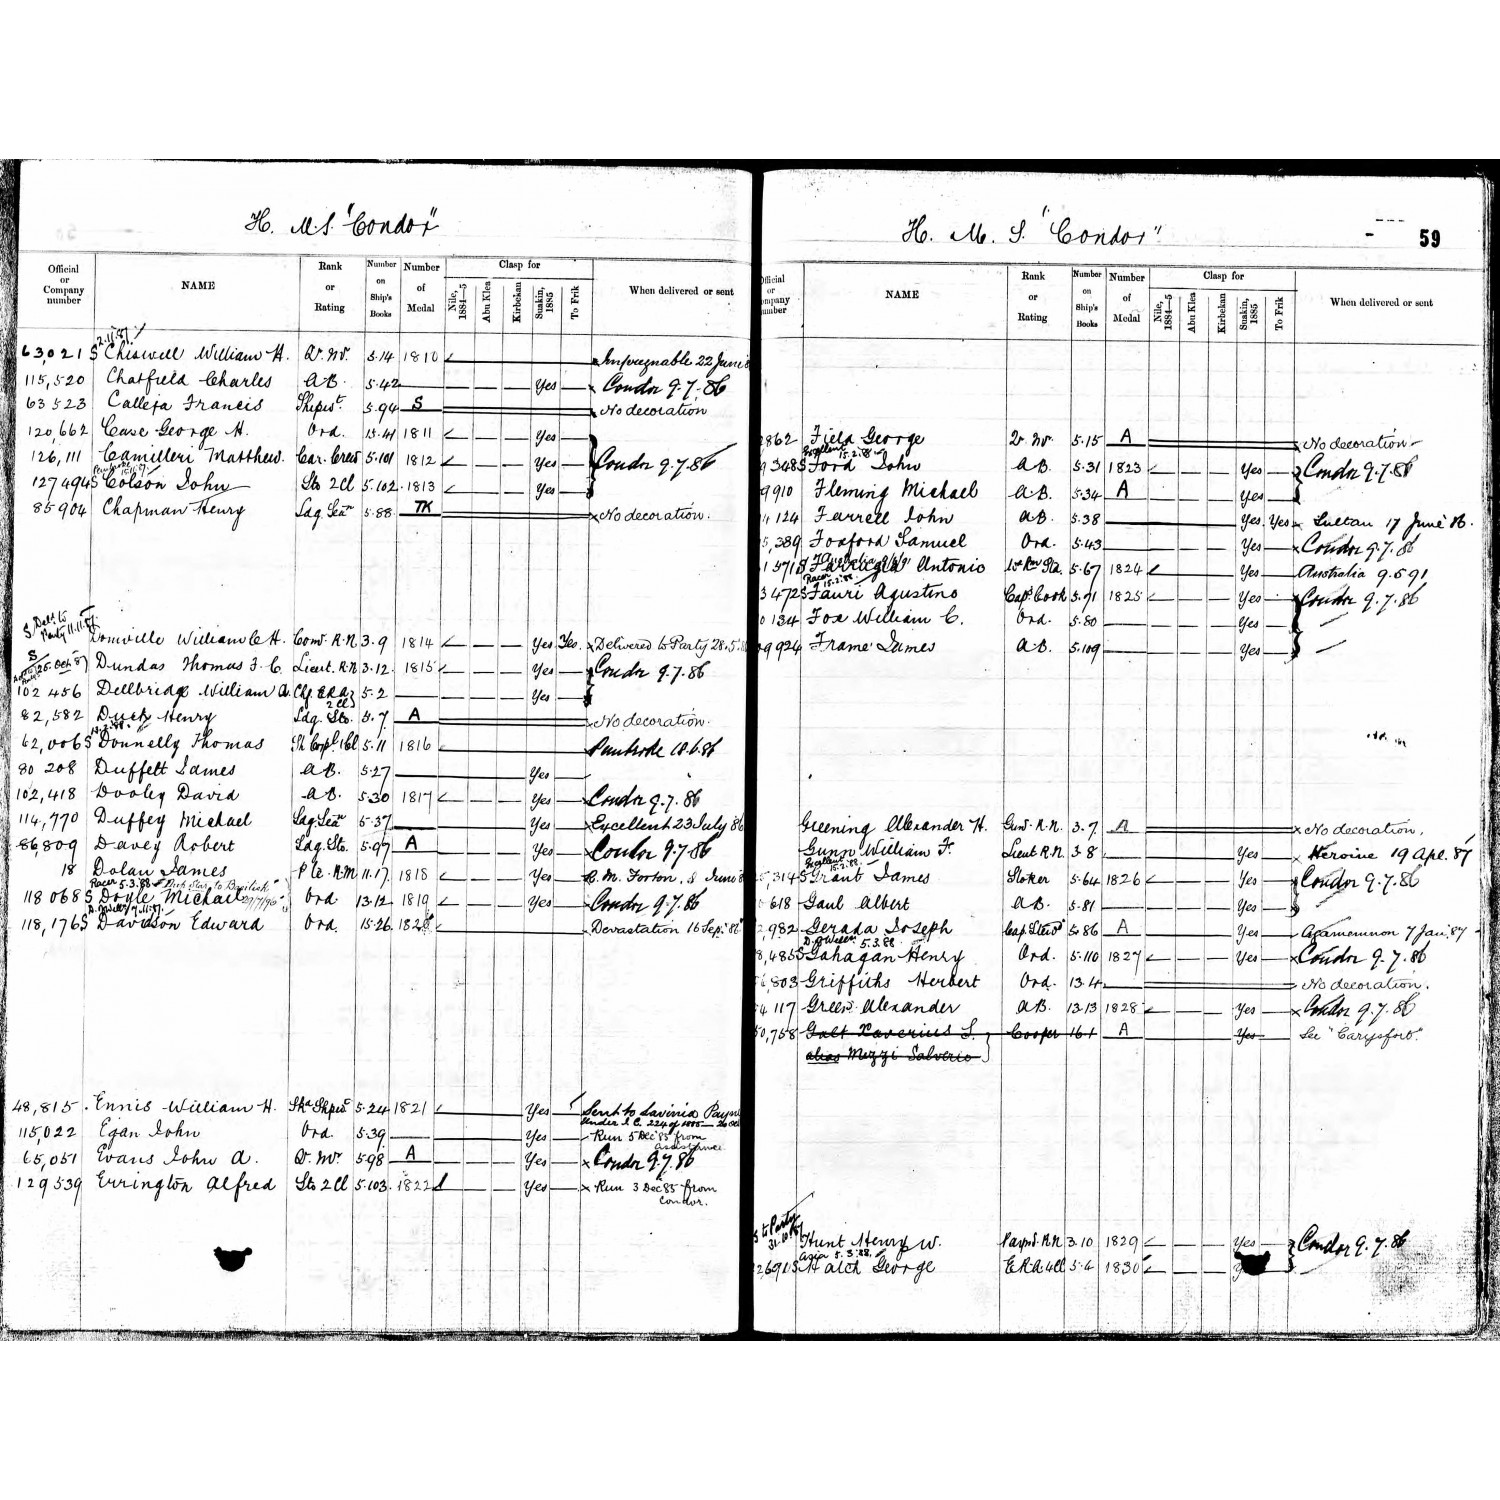 H. M. S. "Condor"
Official or Company number NAME Rank or Rating Number on Ship's Books Number of Medal Clasp for Nile, 1884—5 Abu Klea Kirbekan Suakin, 1885 To Frik When delivered or sent
2.11.87
63,021 S Chiswell William H. Qr. Mr. 5.14 1810 Impregnable 22 June
115,520 Chatfield Charles AB. 5.42 Yes Condor 9.7.86
63 523 Calleja Francis Shipwt. 5.94 S No decoration
120,662 Case George H. Ord. 15.41 1811 Yes
126,111 Camilleri Matthew. Car. Crew 5.101 1812 Yes Condor 9.7.86
127494 S Colson John Sto 2 Cl 5.102 1813 Yes
85904 Chapman Henry Ldg. Sean 5.88 TK No decoration.
S. Deld. to Party 11.11.87
Domville William C H. Com. R.N. 3.9 1814 Yes Yes. Delivered to Party 28.5.
S 25. Oct 87
Dundas Thomas F. C. Lieut. R.N. 3.12 1815 Yes Condor 9.7.86
102 456 Dellbridge William A. Chf E.R.A. 2 Cl 5.2 Yes
82,582 Duck Henry Ldg. Sto. 5.7 A No decoration.
62,006 S Donnelly Thomas Sh. Corpl. 1 Cl 5.11 1816 Pembroke 10.6.86
80 208 Duffett James AB. 5.27 Yes
102,418 Dooley David AB. 5.30 1817 Yes Condor 9.7.86
114,770 Duffey Michael Ldg. Sean 5.37 Yes Excellent 23 July 86
86,809 Davey Robert Ldg. Sto. 5.97 A Yes Condor 9.7.86
18 Dolan James Pte. R.M 11.17 1818 Yes R. M. Forton, 8 June
Racer 5.3.88
118 068 S Doyle Michael Ord 13.12 1819 Yes Condor 9.7.86
118,176 S Davison Edward Ord. 15.26 1820 Devastation 16 Sep. 86
48,815 Ennis William H. 5.24 1821 Yes Sent to Lavinia Payn
under I. C. 224 of 1885
115,022 Egan John Ord. 5.39 Yes Run 5 Dec 85 from
assistance
65,051 Evans John A. Qr. Mr. 5.98 A Yes Condor 9.7.86
129539 Errington Alfred Sto 2 Cl 5.103 1822 Yes Run 3 Dec 85 from
Condor.
H. M. S. "Condor" 59
NAME Rank or Rating Number on Ship's Books Number of Medal Clasp for Nile, 1884—5 Abu Klea Kirbekan Suakin, 1885 To Frik When delivered or sent
2862 Field George Qr. Mr. 5.15 A No decoration
Excellent 15.2.88
9348 S Ford John AB. 5.31 1823 Yes Condor 9.7.86
9910 Fleming Michael AB. 5.34 A Yes
4124 Farrell John AB. 5.38 Yes Yes Sultan 17 June 86.
5,389 Foxford Samuel Ord. 5.43 Yes Condor 9.7.86
1571 S Farrugia Antonio 5.67 1824 Yes Australia 9.5.91
Racer 15.2.88
3472 S Fauri Agustino Capt. Cook 5.71 1825 Yes Condor 9.7.86
0134 Fox William C. Ord. 5.80 Yes
09924 Frame James AB. 5.109 Yes
Greening Alexander H. Gunr. R.N. 3.7 A No decoration.
Gunn William F. Lieut R.N. 3.8 Yes Heroine 19 Apl. 87
Excellent 15.2.88
5,314 S Grant James Stoker 5.64 1826 Yes Condor 9.7.86
618 Gaul Albert AB. 5.81 Yes
2,982 Gerada Joseph Capt. Stewd 5.86 A Yes Agamemnon 7 Jan. 87
5.3.88
8,485 S Gahagan Henry Ord. 5.110 1827 Yes Condor 9.7.86
6,803 Griffiths Herbert Ord. 13.4 No decoration.
4117 Green Alexander AB. 13.13 1828 Yes Condor 9.7.86
50,758 Galt Xaverius S. Cooper 16.1 A Yes See "Carysfort"
alias Mizzi Salverio
S to Party 31.10.87
Hunt Henry W. Paymr. R.N 3.10 1829 Yes Condor 9.7.86
Asia 5.3.88.
26,91 S Hatch George E.R.A 4Cl 5.6 1830